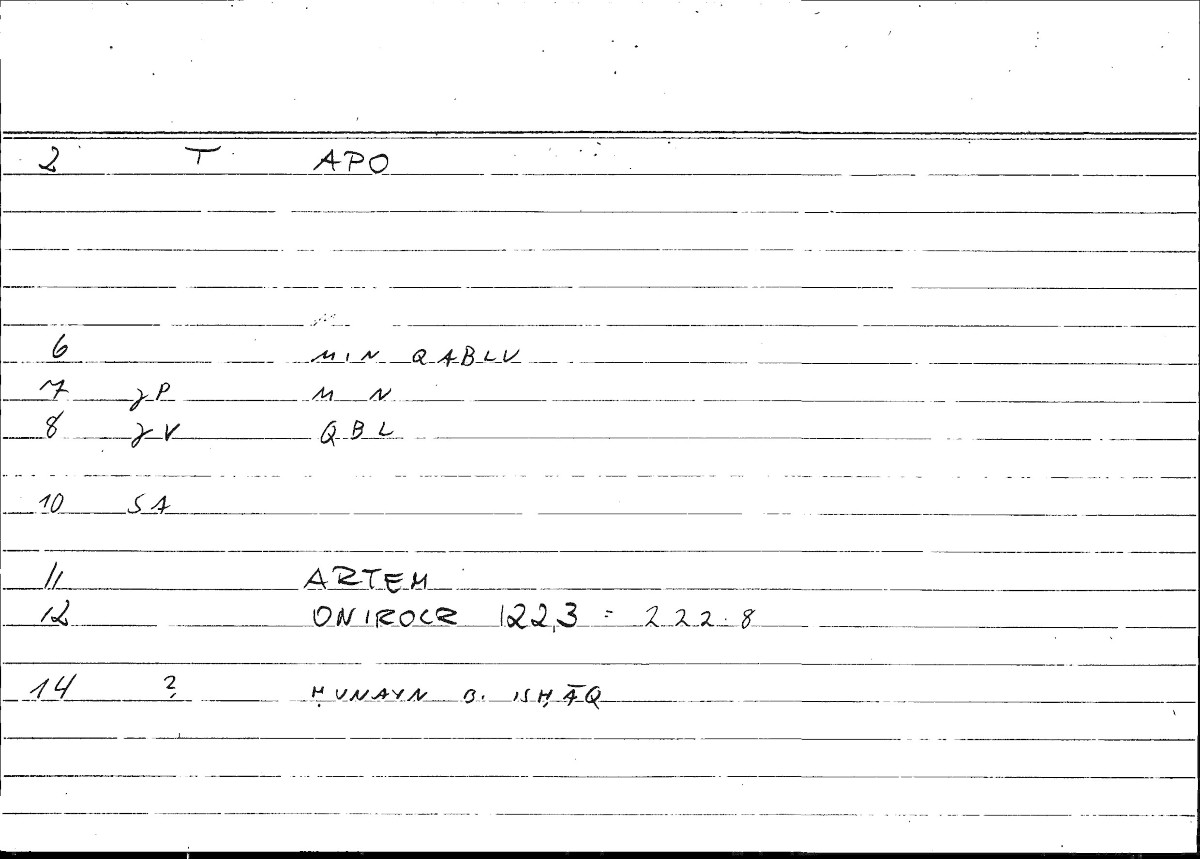 2 T APO
6 MIN QABLU
7 γP M N
8 γV QBL
10 SA
11 ARTEM
12 ONIROCR 122,3 = 222.8
14 ? ḤUNAYN B. ISḤĀQ